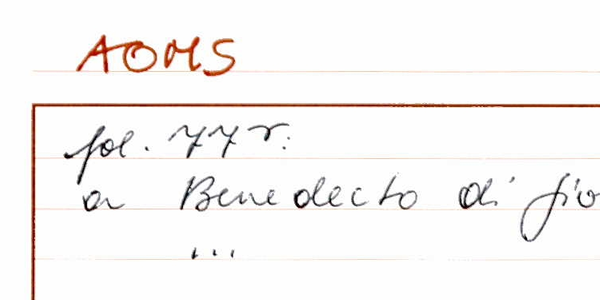 AOMS
fol. 77 r.:
a Benedecto di gio
...